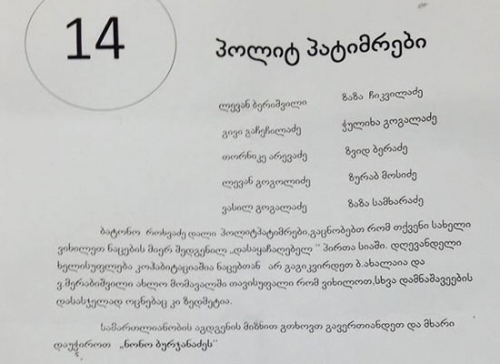 14
პოლიტ პატიმრები
ლევან ბერიშვილი ზაზა ჩიკვილაძე
გივი გაჩეჩილაძე ჭულიხა გოგალაძე
თორნიკე არევაძე ზვიდ ბერაძე
ლევან გოგოლიძე ზურაბ მოსიძე
ვასილ გოგალაძე ზაზა სამხარაძე
ბატონო როსვაძე დალი პოლიტპატიმრები,გაცნობებთ რომ თქვენი სახელი
ვიხილეთ ნაცების მიერ შედგენილ „დასაყაჩაღებელ " პირთა სიაში. დღევანდელი
ხელისუფლება კოჰაბიტაციაშია ნაცებთან არ გაგიკვირდეთ ბ.ახალაია და
ვ.მერაბიშვილი ახლო მომავალში თავისუფალი რომ ვიხილოთ,სხვა დამნაშავეების
დასასჯელად ოცნებაც კი ზედმეტია.
სამართლიანობის აგდგენის მიზნით გთხოვთ გავერთიანდეთ და მხარი
დაუჭიროთ „ნონო ბურჯანაძეს"